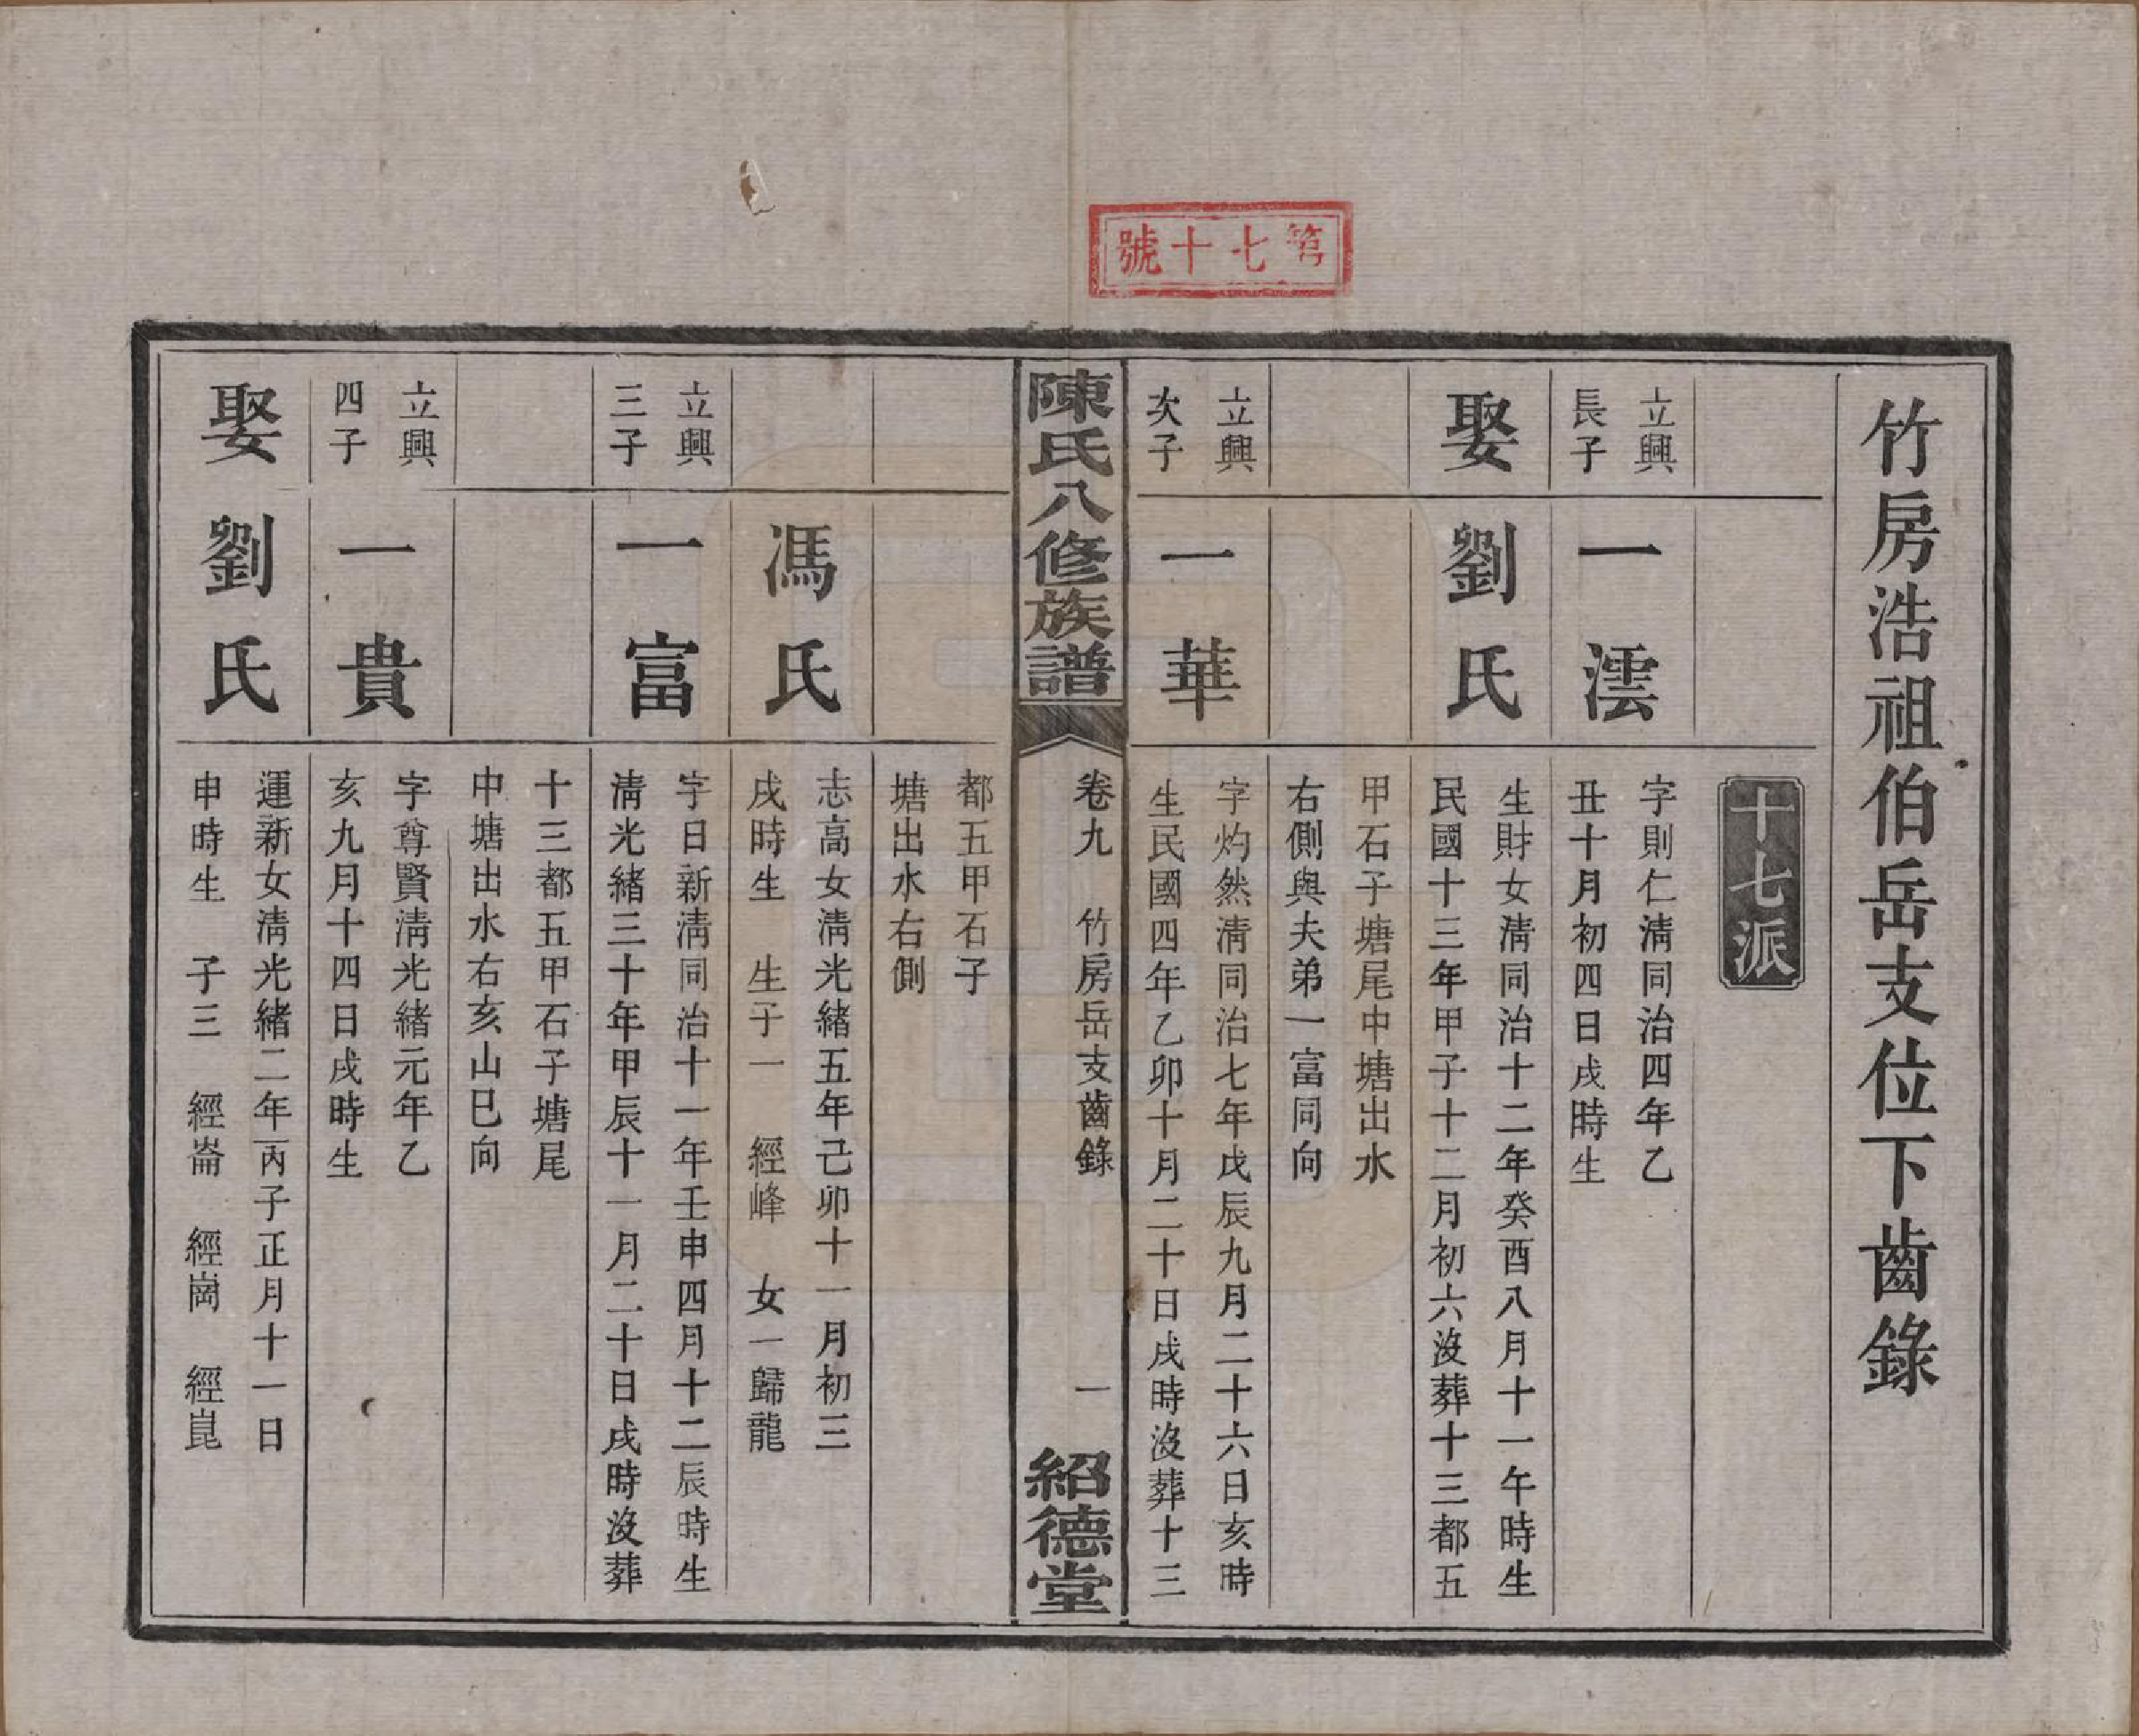 第七十號
竹房浩祖伯岳支位下齒錄
十七派
立興
長子
一澐
字則仁淸同治四年乙
丑十月初四日戌時生
娶
劉氏
生財女淸同治十二年癸酉八月十一午時生
民國十三年甲子十二月初六沒葬十三都五
甲石子塘尾中塘出水
右側與夫弟一富同向
立興
次子
一華
字灼然淸同治七年戊辰九月二十六日亥時
生民國四年乙卯十月二十日戌時沒葬十三
陳氏八修族譜
卷九
竹房岳支齒錄
一
紹德堂
都五甲石子
塘出水右側
馮氏
志高女淸光緒五年己卯十一月初三
戌時生 生子一 經峰 女一歸龍
立興
三子
一富
字日新淸同治十一年壬申四月十二辰時生
淸光緒三十年甲辰十一月二十日戌時沒葬
十三都五甲石子塘尾
中塘出水右亥山巳向
立興
四子
一貴
字尊賢淸光緒元年乙
亥九月十四日戌時生
娶
劉氏
運新女淸光緒二年丙子正月十一日
申時生 子三 經崙 經崗 經崑